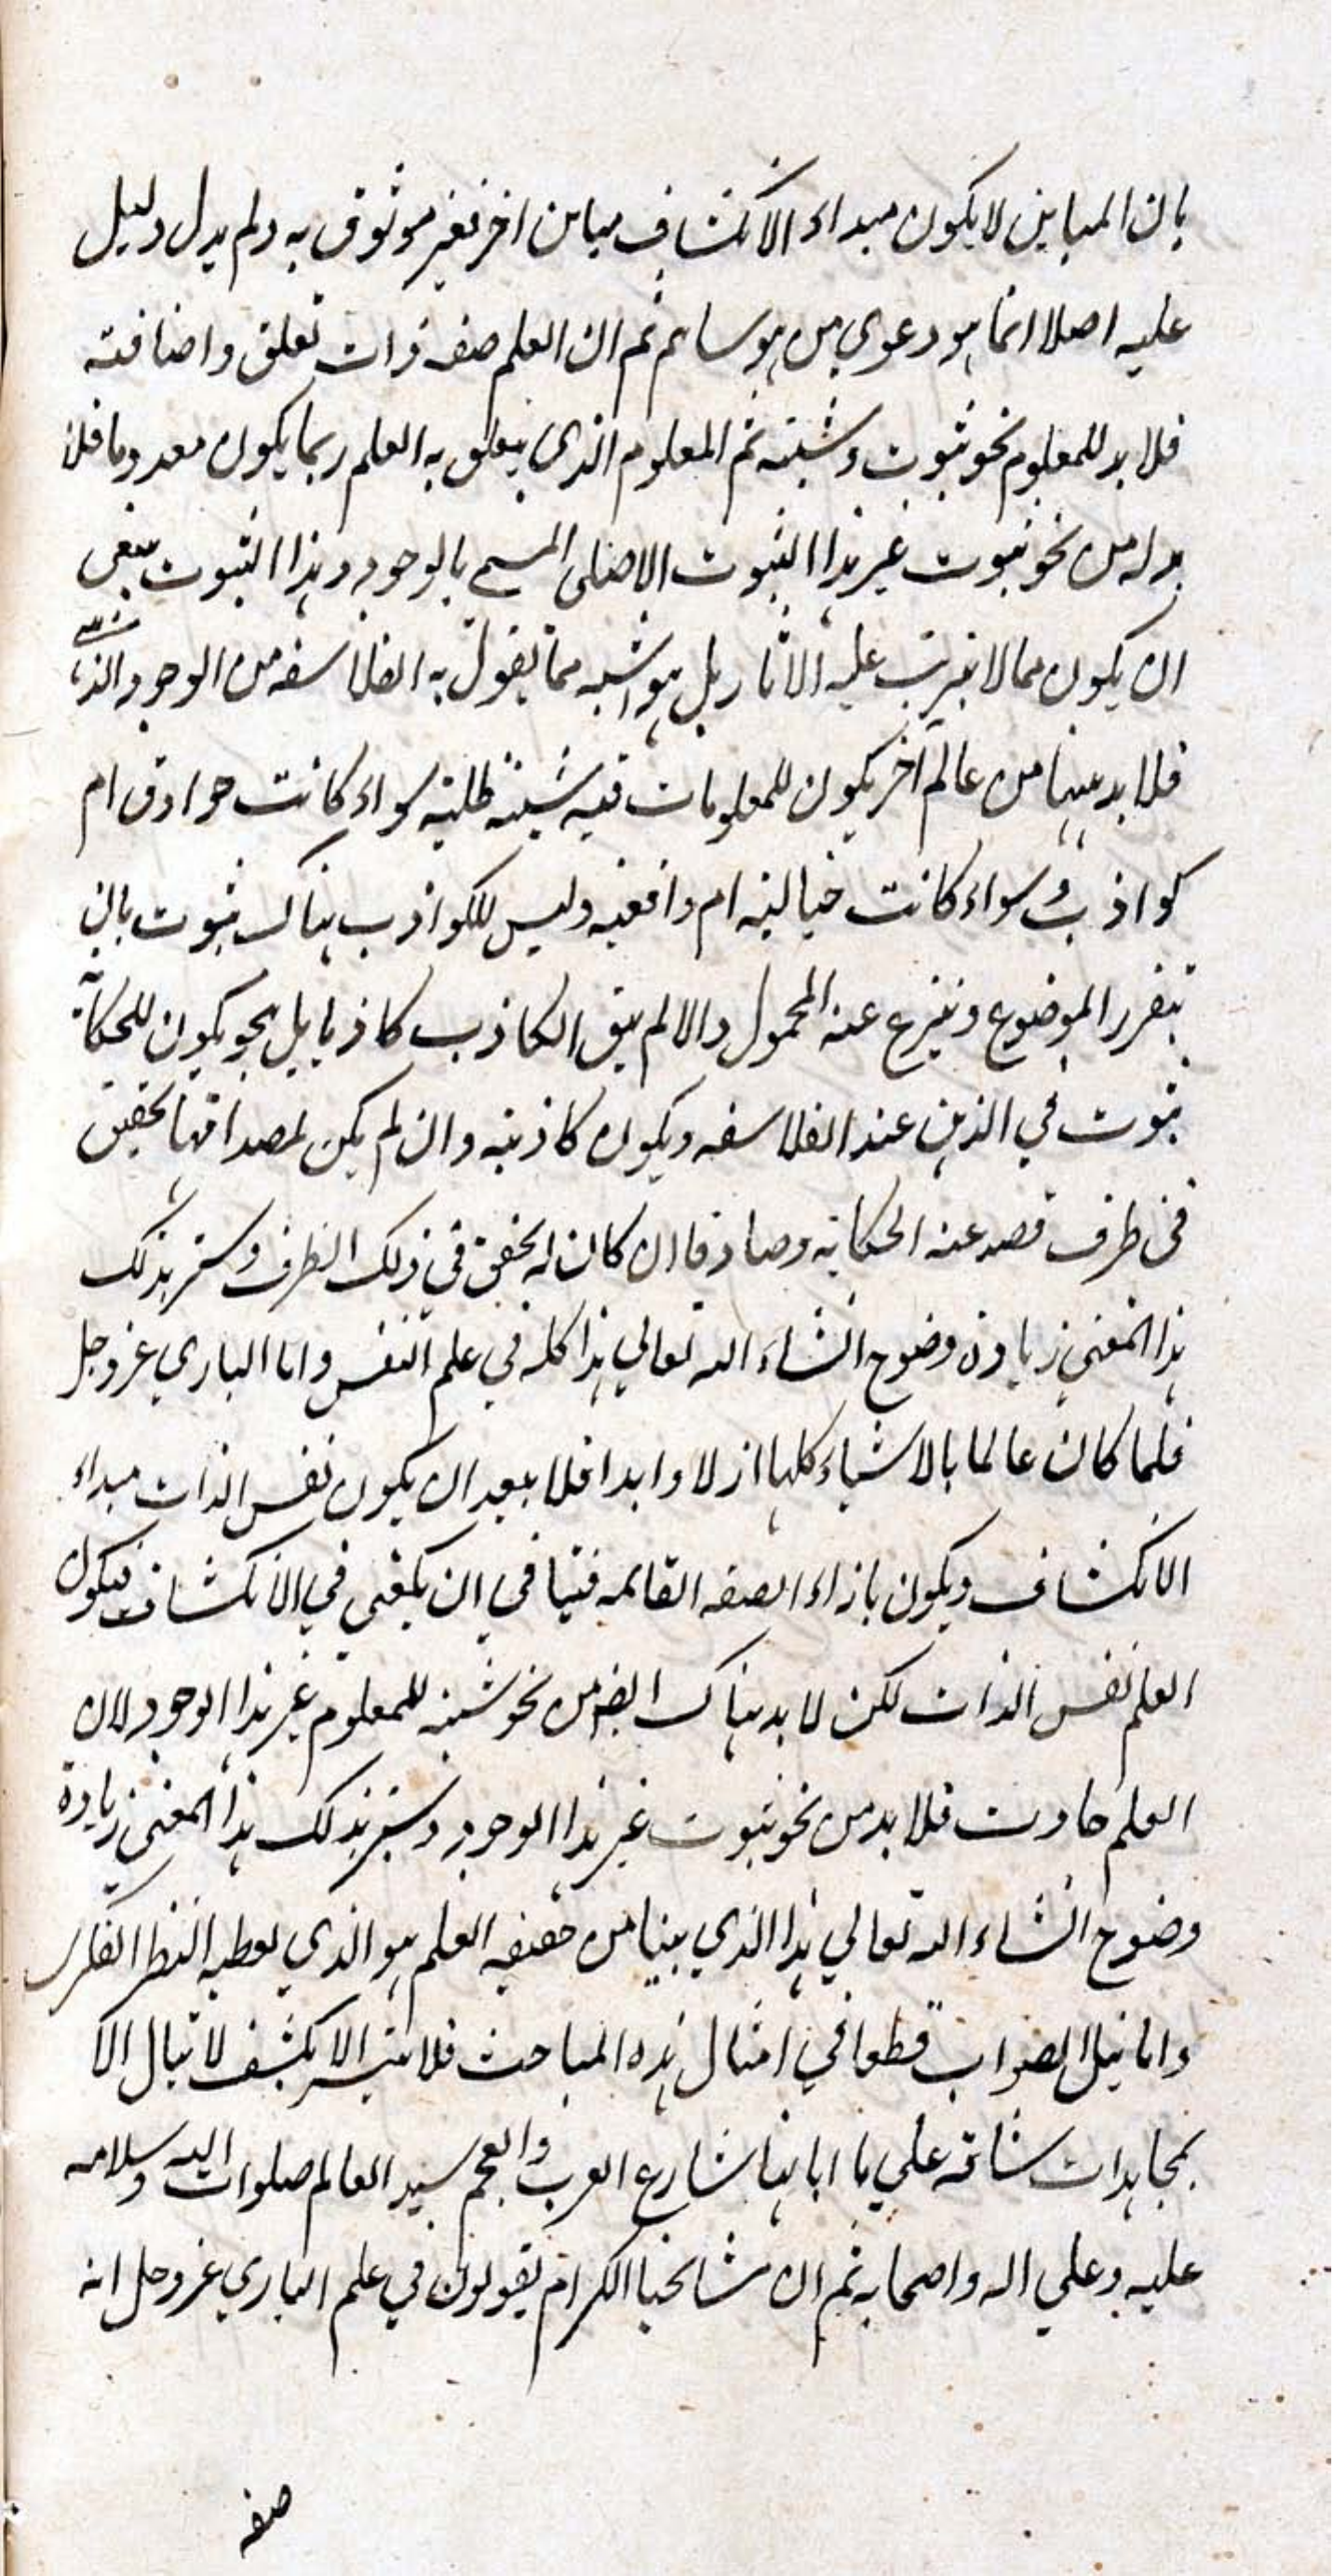 بان المباين لا يكون مبداء الانكشاف مباين اخر فغير موثوق به ولم يدل دليل
عليه اصلا انما هو دعوى من هوساتهم ثم ان العلم صفه ذات تعلق واضافته
فلا بد للمعلوم نحو ثبوت وشيئيته ثم المعلوم الذي يتعلق به العلم ربما يكون معدوما فلا
بد له من نحو ثبوت غير هذا الثبوت الاصلى المسمى بالوجود وهذا الثبوت ينبغى
ان يكون مما لا يترتب عليه الاثار بل هو اشبه مما يقول به الفلاسفه من الوجود الذهنى
فلا بد ههنا من عالم اخر يكون للمعلومات فيه شيئيته ظليته سواء كانت صوادق ام
كواذب وسواء كانت خياليه ام واقعيه وليس للكواذب هناك ثبوت بان
يتقرر الموضوع وينتزع عنه المحمول والا لم يبق الكاذب كاذبا بل نحو يكون للحكاية
ثبوت في الذهن عند الفلاسفه ويكون كاذبته وان لم يكن لمصداقها تحقق
فى ظرف قصد عنه الحكايه وصادقا ان كان له تحقق في ذلك الظرف وستزيد لك
هذا المعنى زيادة وضوح انشاء الله تعالي هذا كله في علم النفس واما الباري عز وجل
فلما كان عالما بالاشياء كلها ازلا وابدا فلا يبعد ان يكون نفس الذات مبداء
الانكشاف ويكون بازاء الصفه القائمه فينا في ان يكفي في الانكشاف فيكون
العلم نفس الذات لكن لا بد هناك ايضا من نحو شيئيه للمعلوم غير هذا الوجود لان
العلم حادث فلا بد من نحو ثبوت غير هذا الوجود وستزيد لك هذا المعنى زيادة
وضوح انشاء الله تعالي هذا الذي بينا من حقيقه العلم هو الذي يعطيه النظر الفكرى
واما نيل الصواب قطعا في امثال هذه المباحث فلا يتيسر الا بكشف لا ينال الا
بمجاهدات شاقه علي ما ابانها شارع العرب والعجم سيد العالم صلوات الله وسلامه
عليه وعلي اله واصحابه ثم ان مشائخنا الكرام يقولون في علم الباري عز وجل انه
صفه